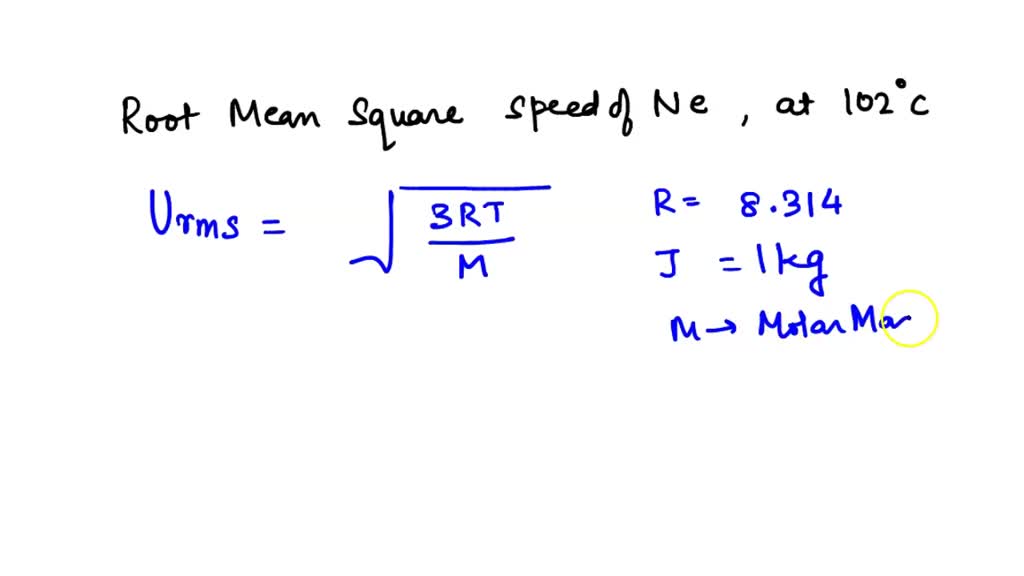 Root Mean Square speed of Ne, at 102°C
Urms = √(3RT/M)
R = 8.314
J = 1kg
M → Molar Mas